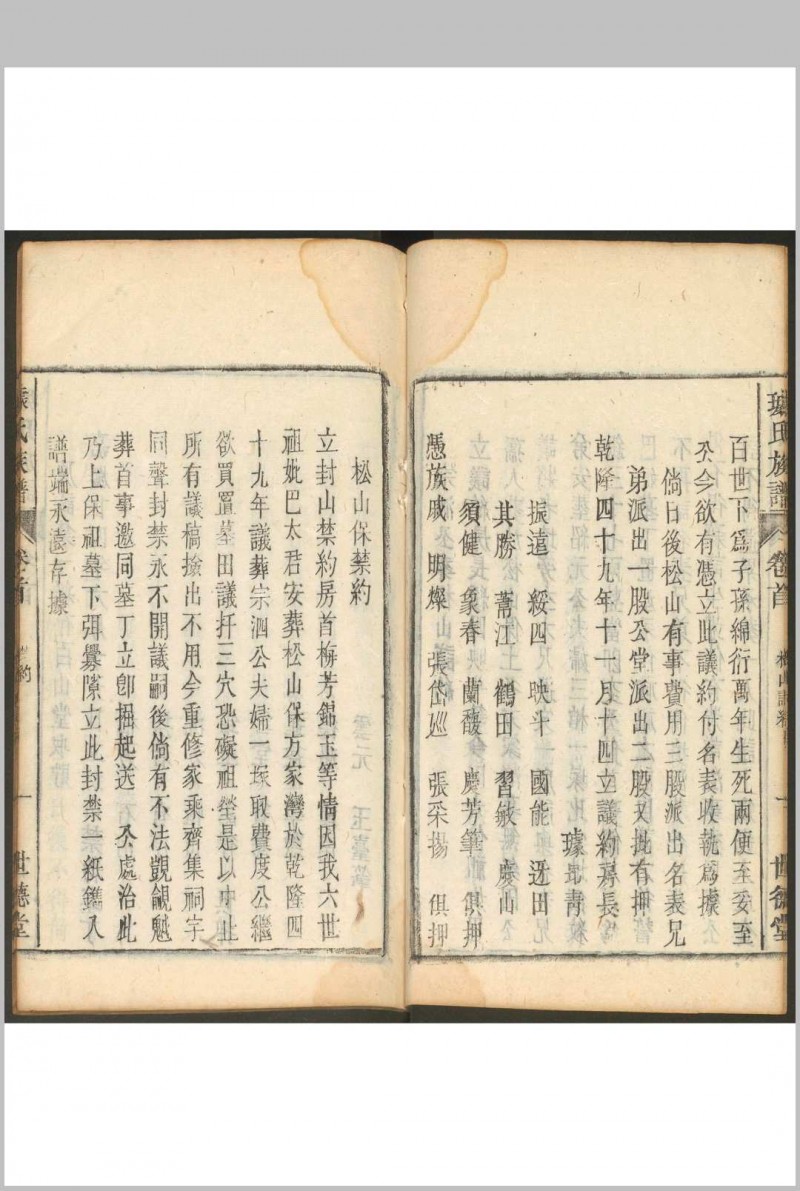 氏族譜 卷首 一 世德堂
百世下爲子孫綿衍萬年生死兩便至委至
公今欲有憑立此議約付名表收執爲據
倘日後松山有事費用三股派出名表兄
弟派出一股公堂派出二股又批有押
乾隆四十九年十一月十四立議約房長
璩 青
振遠 綏四 映斗 國能 迓田
其勝 蒿江 鶴田 習敏 慶山
須健 象春 蘭馥 慶芳筆 俱押
憑族戚 明燦 張岱巡 張采揚 俱押
松山保禁約
立封山禁約房首梅芳錦玉等情因我六世
祖妣巴太君安葬松山保方家灣於乾隆四
十九年議葬宗泗公夫婦一塚取費度公繼
欲買置墓田議扦三穴恐礙祖塋是以中止
所有議稿撿出不用今重修家乘齊集祠宇
同聲封禁永不開議嗣後倘有不法覬覦魆
葬首事邀同墓丁立卽掘起送公處治此
乃上保祖墓下弭釁隙立此封禁一紙鐫入
譜端永遠存據
氏族譜 卷首 約 一 世德堂